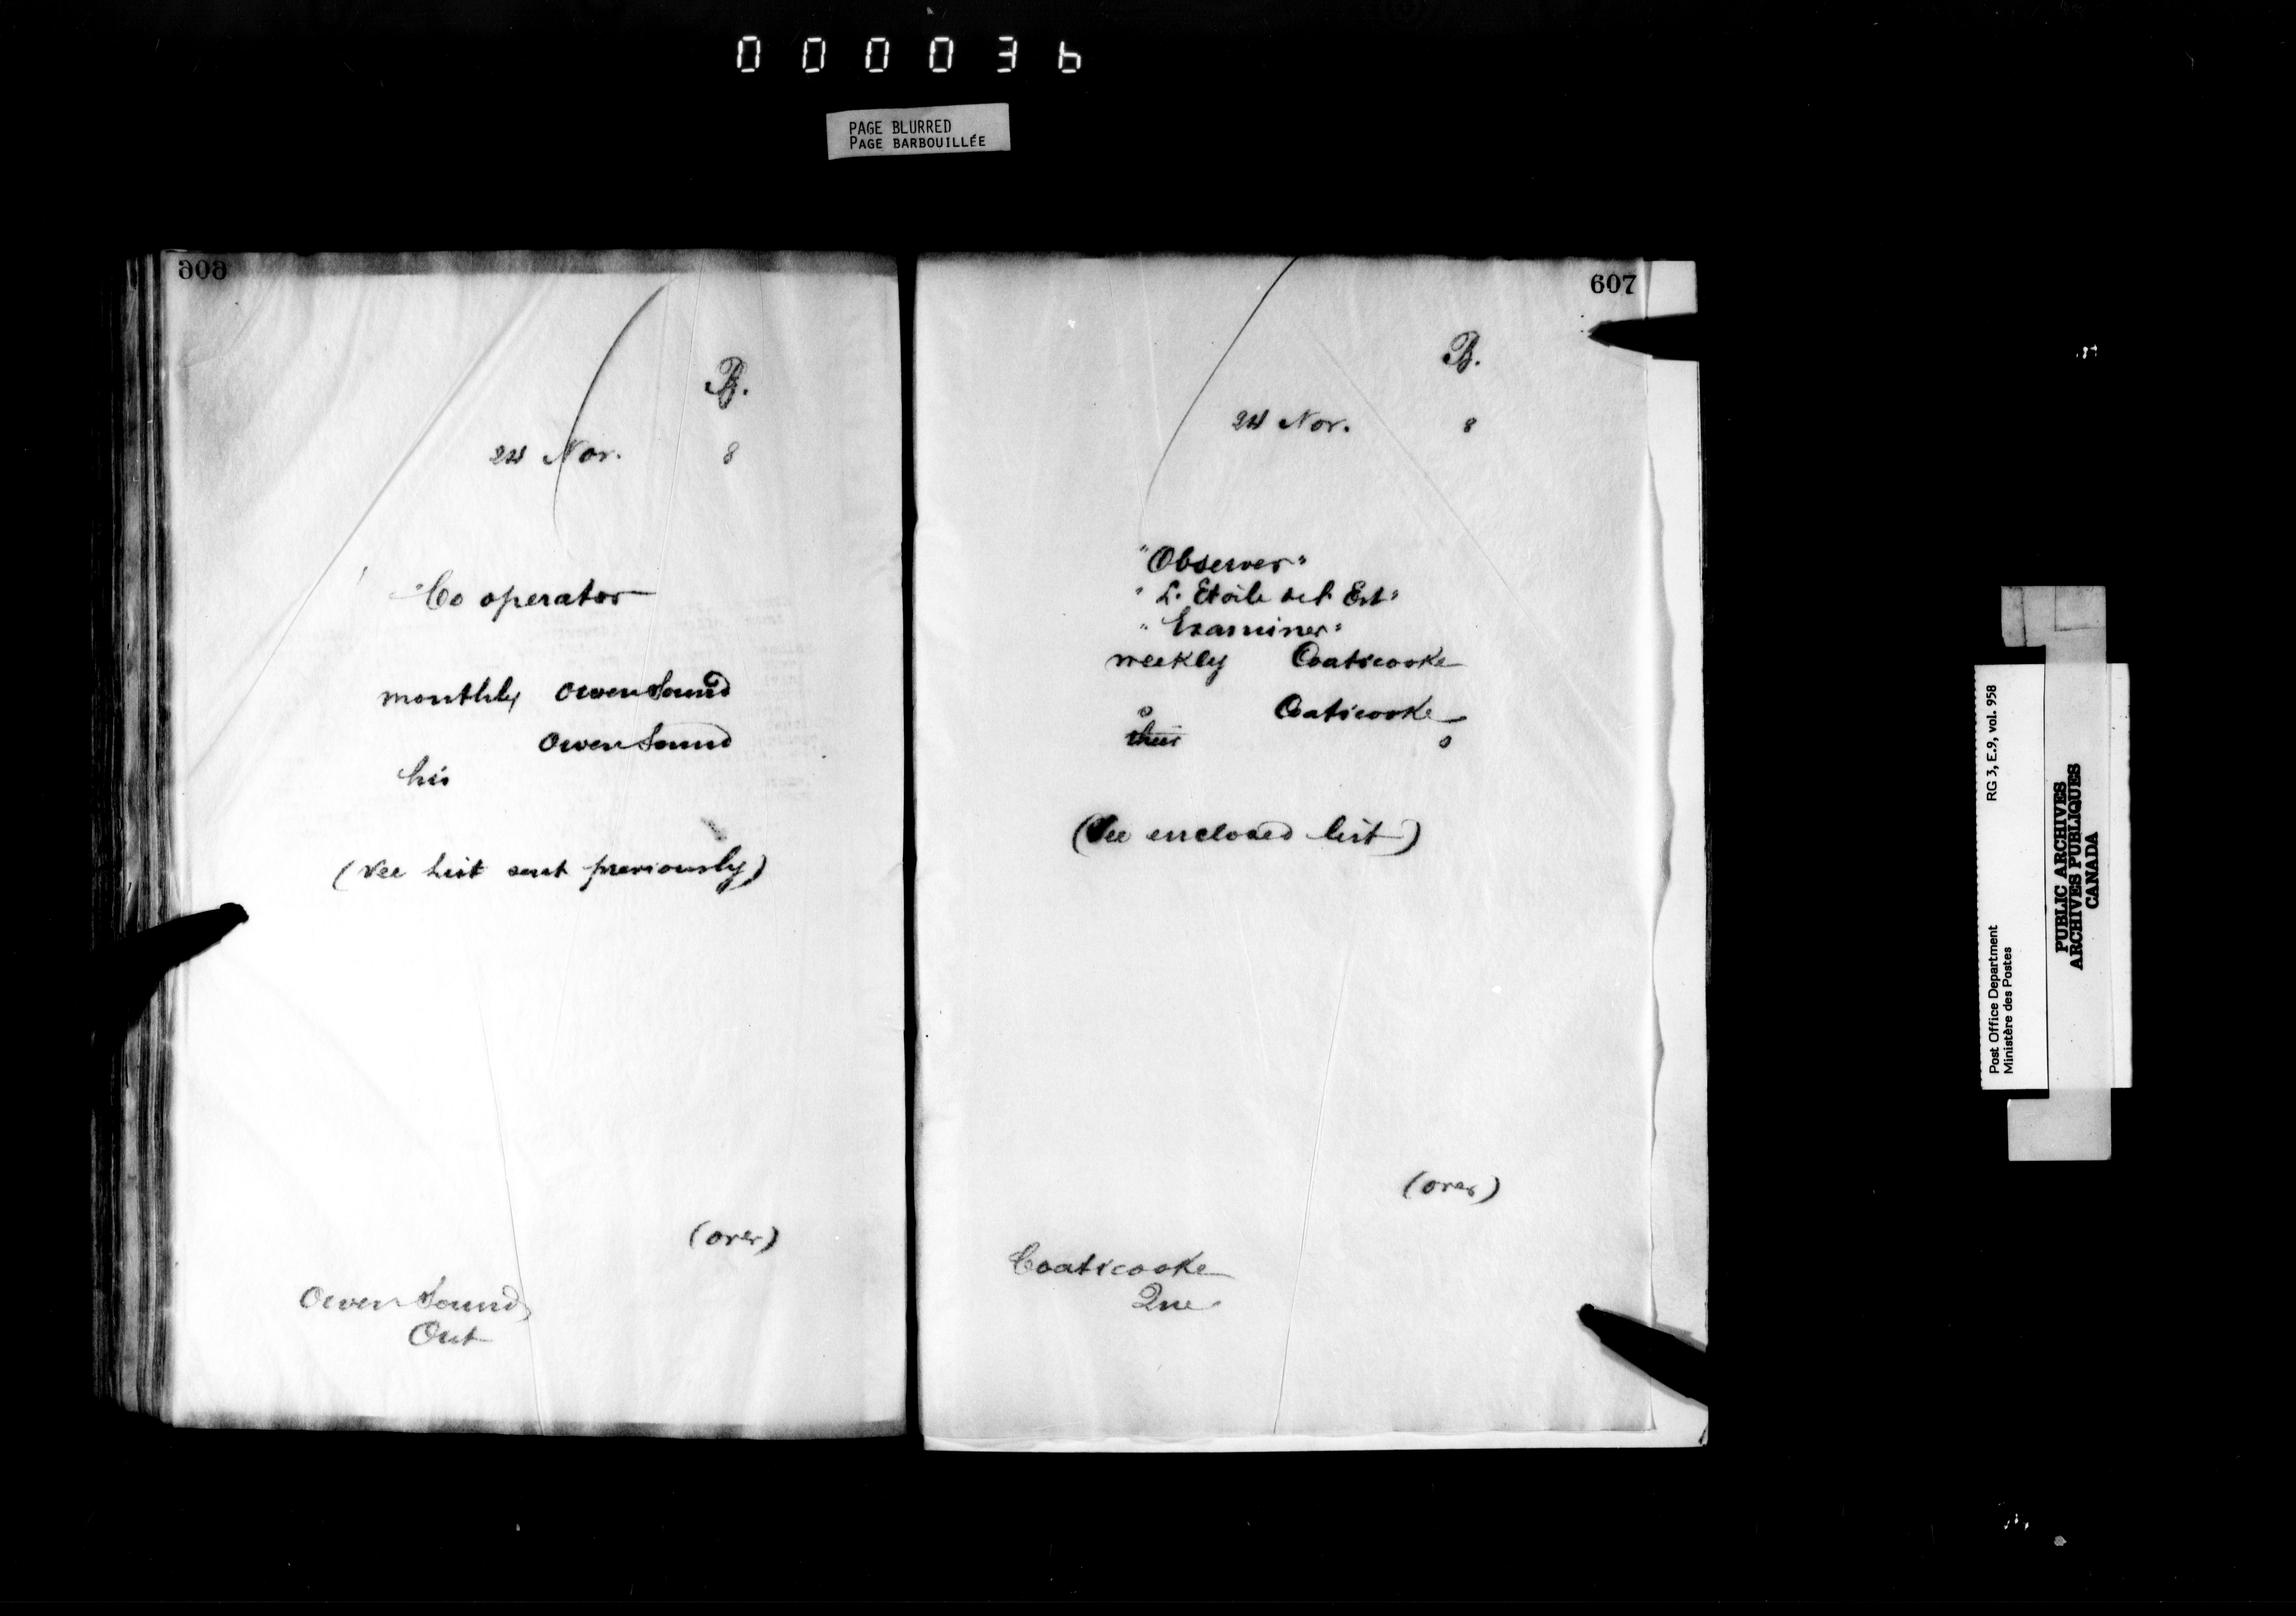 000036
PAGE BLURRED
PAGE BARBOUILLÉE
606
B.
24 Nov. 8
"Co operator
monthly Owen Sound
Owen Sound
his
(See list sent previously)
(over)
Owen Sound
Ont
607
B.
24 Nov. 8
"Observer"
"L'Etoile de l'Est"
"Examiner"
weekly Coaticooke
Coaticooke
their
(See enclosed list)
(over)
Coaticooke
Que
Post Office Department RG 3, E.9, vol. 958
Ministère des Postes
PUBLIC ARCHIVES
ARCHIVES PUBLIQUES
CANADA